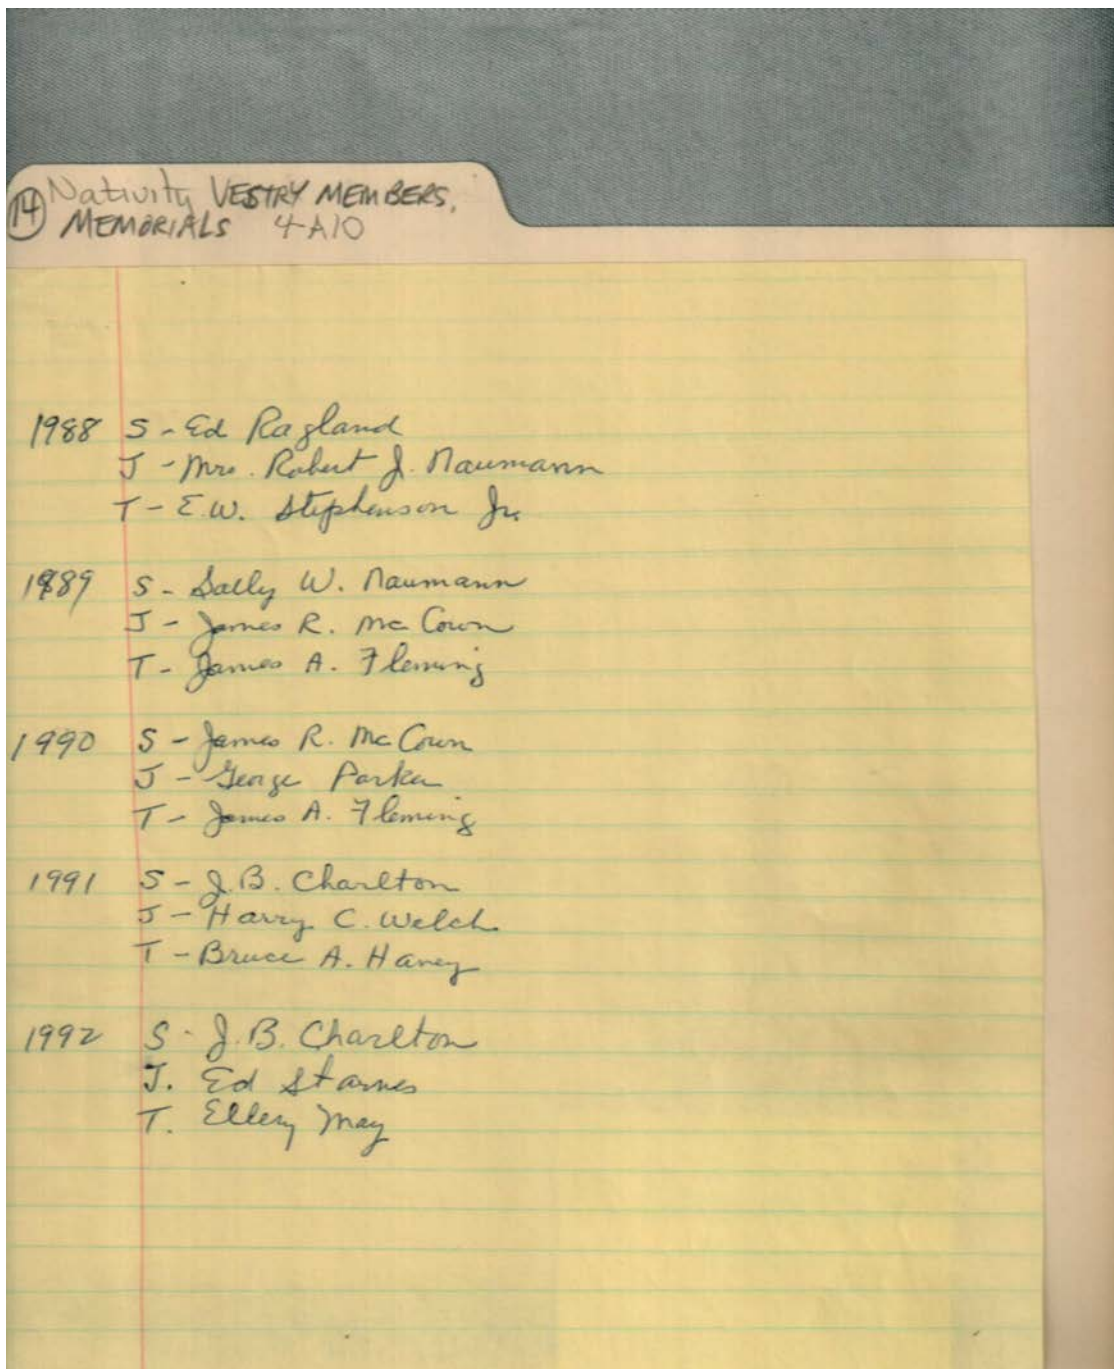 14 Nativity VESTRY MEMBERS,
MEMORIALS 4-A10
1988 S - Ed Ragland
J - Mrs. Robert J. Naumann
T - E.W. Stephenson Jr.
1989 S - Sally W. Naumann
J - James R. McCown
T - James A. Fleming
1990 S - James R. McCown
J - George Parker
T - James A. Fleming
1991 S - J.B. Charlton
J - Harry C. Welch
T - Bruce A. Haney
1992 S - J.B. Charlton
J. Ed Starnes
T. Ellery May